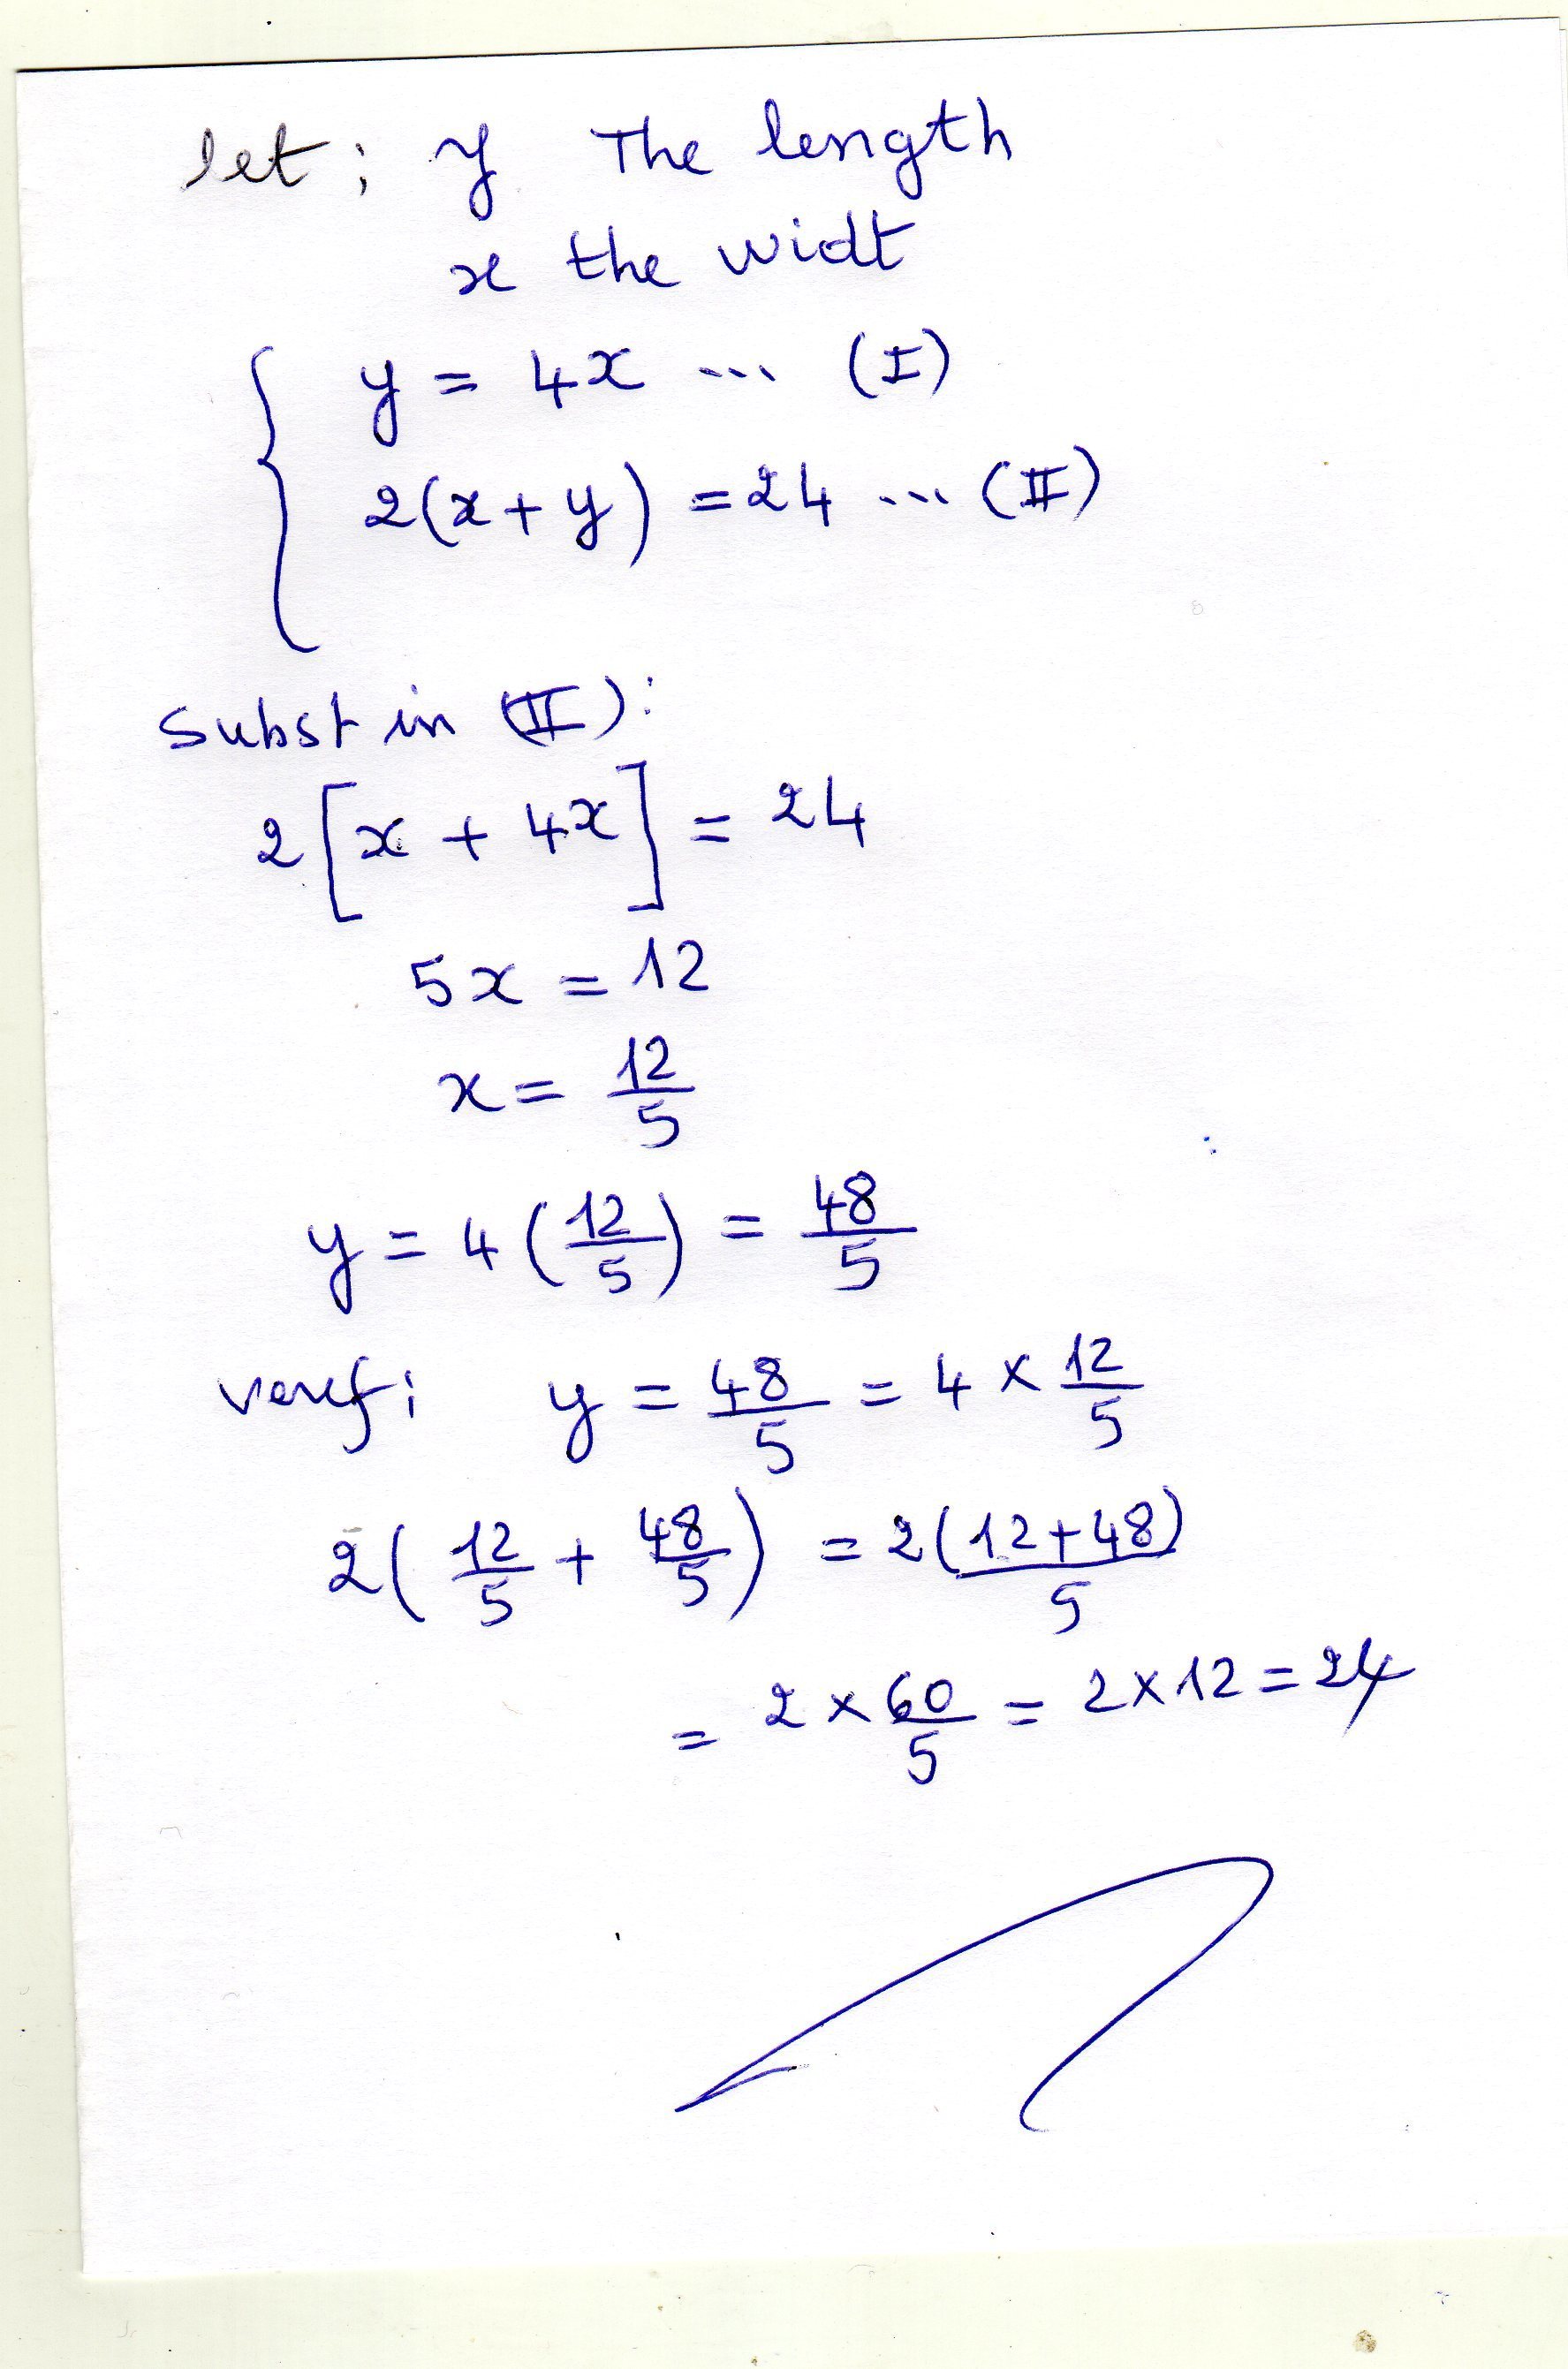 let; y The length
x the widt
y = 4x ... (I)
2(x+y) = 24 ... (II)
Subst in (II):
2[x + 4x] = 24
5x = 12
x = 12/5
y = 4(12/5) = 48/5
verf: y = 48/5 = 4 × 12/5
2(12/5 + 48/5) = 2(12+48)/5
= 2 × 60/5 = 2×12 = 24